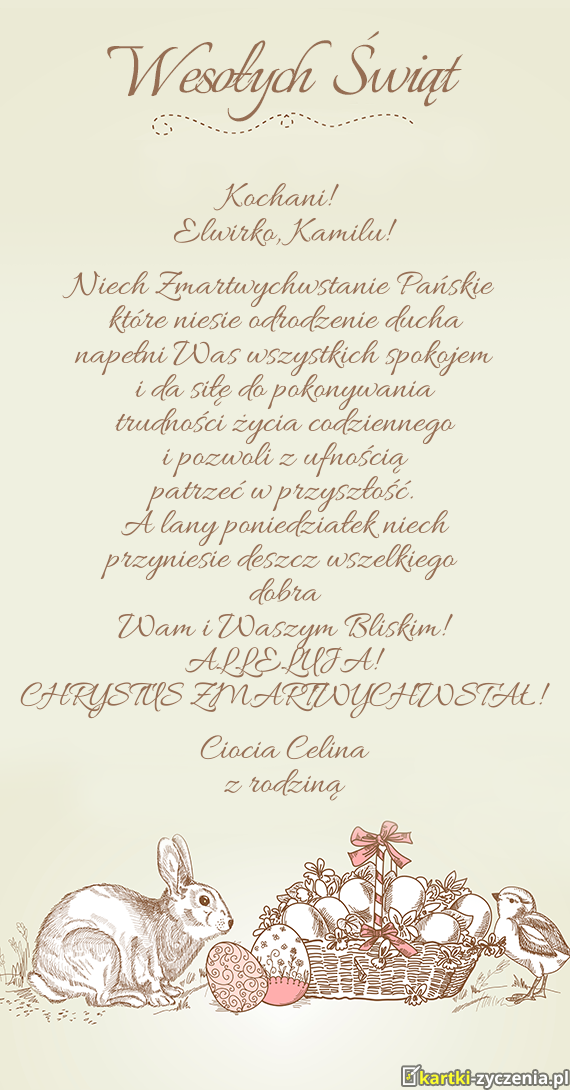 Wesołych Świąt
Kochani!
Elwirko, Kamilu!
Niech Zmartwychwstanie Pańskie
które niesie odrodzenie ducha
napełni Was wszystkich spokojem
i da siłę do pokonywania
trudności życia codziennego
i pozwoli z ufnością
patrzeć w przyszłość.
A lany poniedziałek niech
przyniesie deszcz wszelkiego
dobra
Wam i Waszym Bliskim!
ALLELUJA!
CHRYSTUS ZMARTWYCHWSTAŁ!
Ciocia Celina
z rodziną
kartki-zyczenia.pl